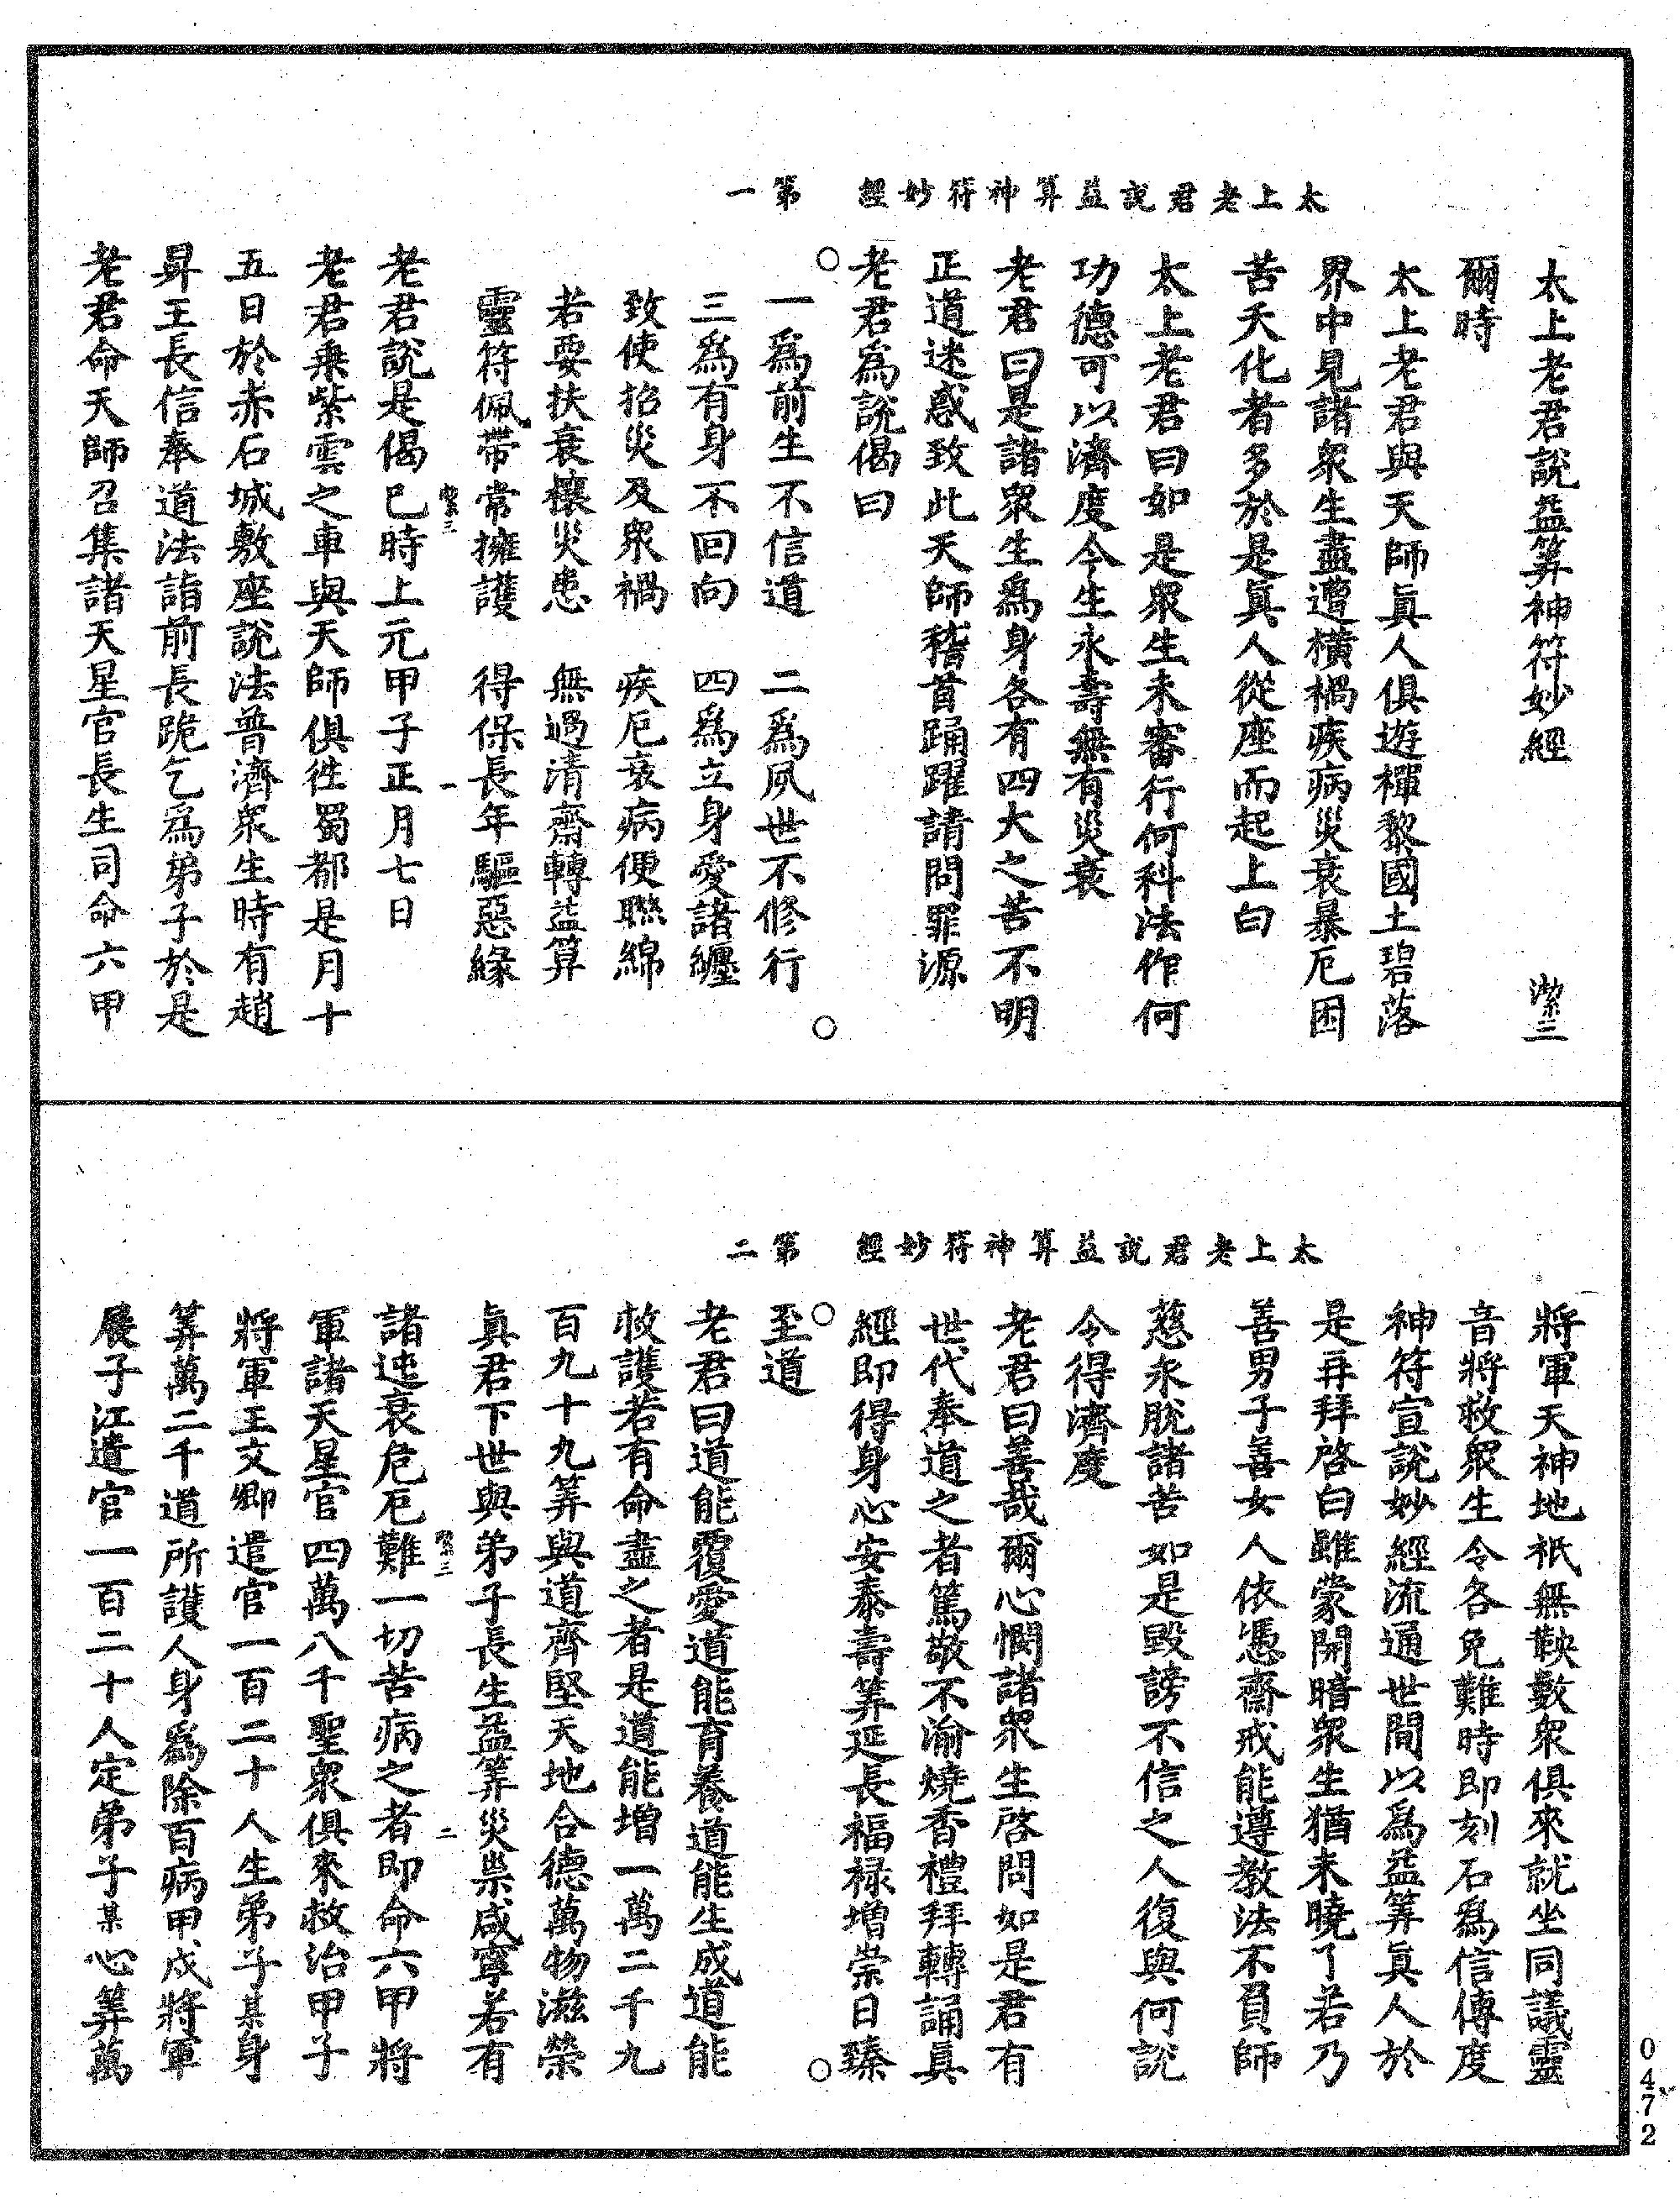 太上老君說益算神符妙經 第一
太上老君說益筭神符妙經 潔三
爾時
太上老君與天師眞人俱遊禪黎國土碧落
界中見諸衆生盡遭橫禍疾病災衰暴厄困
苦夭化者多於是眞人從座而起上白
太上老君曰如是衆生未審行何科法作何
功德可以濟度令生永壽無有災衰
老君曰是諸衆生爲身各有四大之苦不明
正道迷惑致此天師稽首踊躍請問罪源
老君爲說偈曰
一爲前生不信道 二爲夙世不修行
三爲有身不回向 四爲立身愛諸纏
致使招災及衆禍 疾厄衰病便聮綿
若要扶衰禳災患 無過清齋轉益算
靈符佩帶常擁護 得保長年驅惡緣
潔三 一
老君說是偈已時上元甲子正月七日
老君乘紫雲之車與天師俱徃蜀都是月十
五日於赤石城敷座說法普濟衆生時有趙
昇王長信奉道法詣前長跪乞爲弟子於是
老君命天師召集諸天星官長生司命六甲
太上老君說益算神符妙經 第二
將軍天神地祇無鞅數衆俱來就坐同議靈
音將救衆生令各免難時即刻石爲信傳度
神符宣說妙經流通世間以爲益筭眞人於
是再拜啓白雖蒙開暗衆生猶未曉了若乃
善男子善女人依憑齋戒能遵教法不負師
慈永脫諸苦如是毀謗不信之人復與何說
令得濟度
老君曰善哉爾心憫諸衆生啓問如是君有
世代奉道之者篤敬不渝燒香禮拜轉誦眞
經即得身心安泰壽筭延長福禄增崇日臻
至道
老君曰道能覆愛道能育養道能生成道能
救護若有命盡之者是道能增一萬二千九
百九十九筭與道齊堅天地合德萬物滋榮
眞君下世與弟子長生益筭災祟咸寧若有
潔三 二
諸迍衰危厄難一切苦病之者即命六甲將
軍諸天星官四萬八千聖衆俱來救治甲子
將軍王文卿遣官一百二十人生弟子某身
筭萬二千道所護人身爲除百病甲戍將軍
展子江遣官一百二十人定弟子某心筭萬
0472